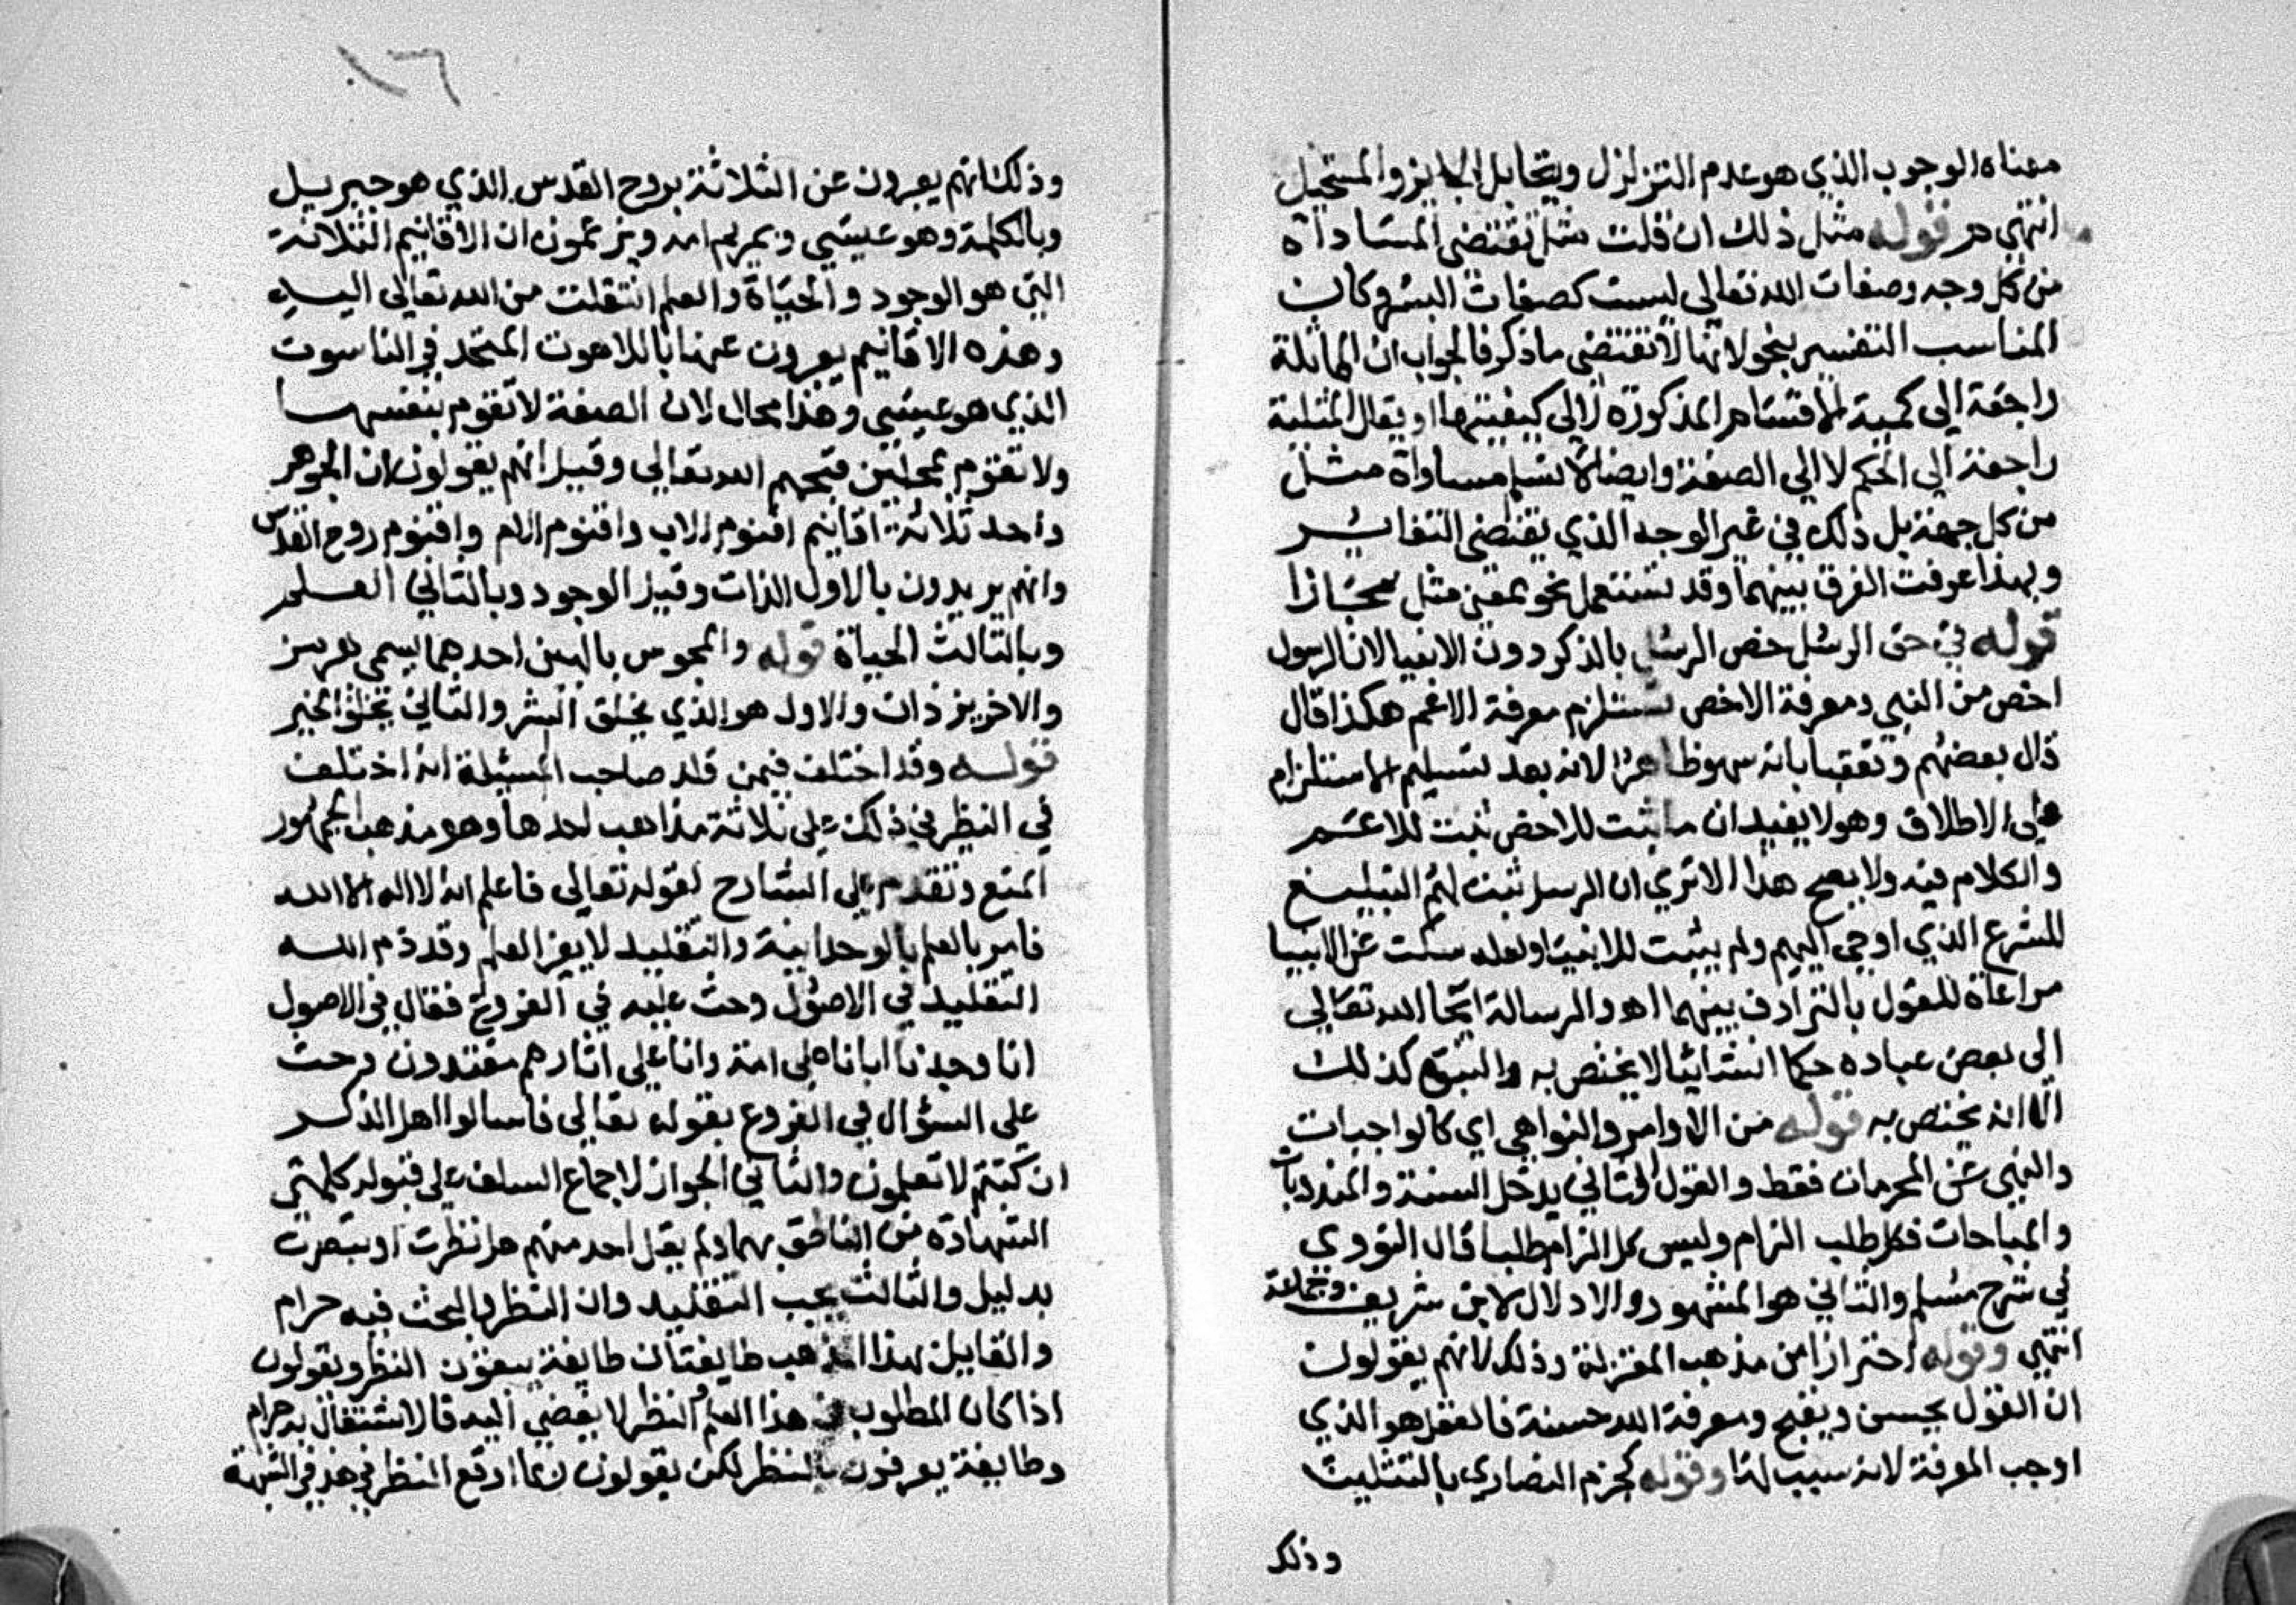 معناه الوجوب الذي هو عدم التزلزل ويقابل الجايز والمستحيل
انتهي قوله مثل ذلك ان قلت مثل تقتضي المساداة
من كل وجه وصفات الله تعالى ليست كصفات البشر وكان
المناسب التفسير بنحو لانها لا تقتضي ما ذكر فالجواب ان المماثلة
راجعة الي كمية الاقسام المذكورة لا الي كيفيتها او يقال المثلية
راجعة الي الحكم لا الي الصفة وايضا مساواة مثل
من كل جهة بل ذلك في غير الوجه الذي يقتضي التغاير
وبهذا عرفت الفرق بينهما وقد تستعمل نحو بمعني مثل مجازا
قوله في حق الرسل خص الرسل بالذكر دون الانبيا لان الرسول
اخص من النبي ومعرفة الاخص تستلزم معرفة الاعم هكذا قال
قال بعضهم وتعقب بانه سهو ظاهر لانه بعد تسليم الاستلزام
علي الاطلاق وهو لا يفيد ان ما ثبت للاخص ثبت للاعم
والكلام فيه ولا يصح هذا الا تري ان الرسل ثبت لهم التبليغ
للشرع الذي اوحي اليهم ولم يثبت للانبيا ولعله سكت عن الانبيا
مراعاة للقول بالترادف بينهما اهـ والرسالة ايحا الله تعالي
الي بعض عباده حكما انشائيا لا يختص به والنبوة كذلك
الا انه يختص به قوله من الاوامر والنواهي اي كالواجبات
والنهي عن المحرمات فقط والقول الثاني يدخل السنة والمندوبات
والمباحات فكل طلب الزام وليس كل الزام طلبا قال النووي
في شرح مسلم والثاني هو المشهور والاول لابن شريف وجماعة
انتهي وقوله احترازا من مذهب المعتزلة وذلك لانهم يقولون
ان العقل يحسن ويقبح ومعرفة الله حسنة فالعقل هو الذي
اوجب المعرفة لانه سبب لها وقوله كجزم النصاري بالتثليث
وذلك
١٦
وذلك انهم يعبرون عن الثلاثة بروح القدس الذي هو جبريل
وبالكلمة وهو عيسي وبمريم امه ويزعمون ان الاقانيم الثلاثة
التي هو الوجود والحياة والعلم انتقلت من الله تعالى اليه
وهذه الاقانيم يعبرون عنها باللاهوت المتحد في الناسوت
الذي هو عيسي وهذا محال لان الصفة لا تقوم بنفسها
ولا تقوم بمحلين قبحهم الله تعالي وقيل انهم يقولون ان الجوهر
واحد ثلاثة اقانيم اقنوم الاب واقنوم الام واقنوم روح القدس
وانهم يريدون بالاول الذات وقيل الوجود وبالثاني العلم
وبالثالث الحياة قوله والمجوس بالهين احدهما يسمي بهرمز
والاخر يزذان والاول هو الذي يخلق الشر والثاني يخلق الخير
قوله وقد اختلف فيمن قلد صاحب المسئلة انه اختلف
في النظر في ذلك علي ثلاثة مذاهب احدها وهو مذهب الجمهور
المنع وتقدم علي الشارح لقوله تعالي فاعلم انه لا اله الا الله
فامر بالعلم بالوحدانية والتقليد لا يفز العلم وقد ذم الله
التقليد في الاصول وحث عليه في الفروع فقال في الاصول
انا وجدنا ابانا على امة وانا علي اثارهم مقتدون وحث
علي السؤال في الفروع بقوله تعالي فاسالوا اهل الذكر
ان كنتم لا تعلمون والثاني الجواز لاجماع السلف علي قبول كلمتي
الشهادة من الناطق بهما ولم يقل احد منهم هل نظرت او تبصرت
بدليل والثالث يجب التقليد وان النظر والبحث فيه حرام
والقايل بهذا المذهب طايفتان طايفة ينفون النظر ويقولون
اذا كان المطلوب في هذا العلم النظر لا يفضي اليه فالاشتغال به حرام
وطايفة يعرفون بالنظر لكن يقولون ربما اوقع النظر في هذ في الشبهة